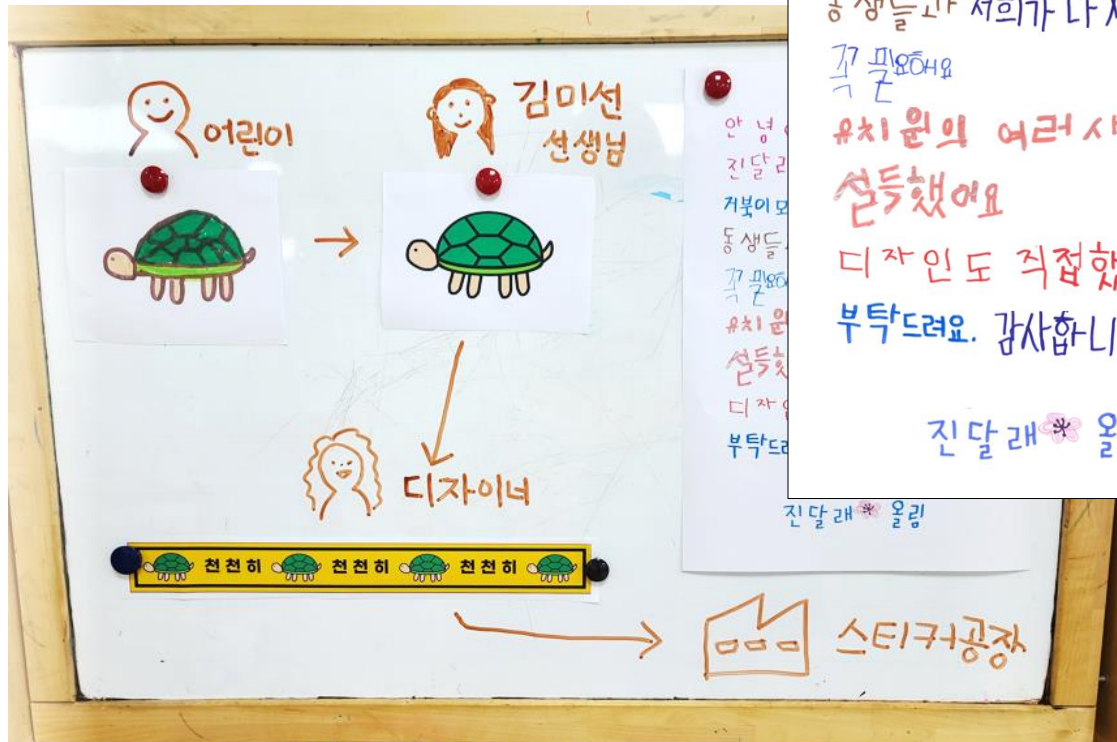 어린이
김미선
선생님
디자이너
천천히 천천히 천천히
스티커공장
안녕
진달래
거북이
동생들
꼭 필요해
유치원
설득했
디자인
부탁드려
진달래 올림
동생들과 저희가
꼭 필요해요
유치원의 여러
설득했어요
디자인도 직접했
부탁드려요. 감사합니
진달래